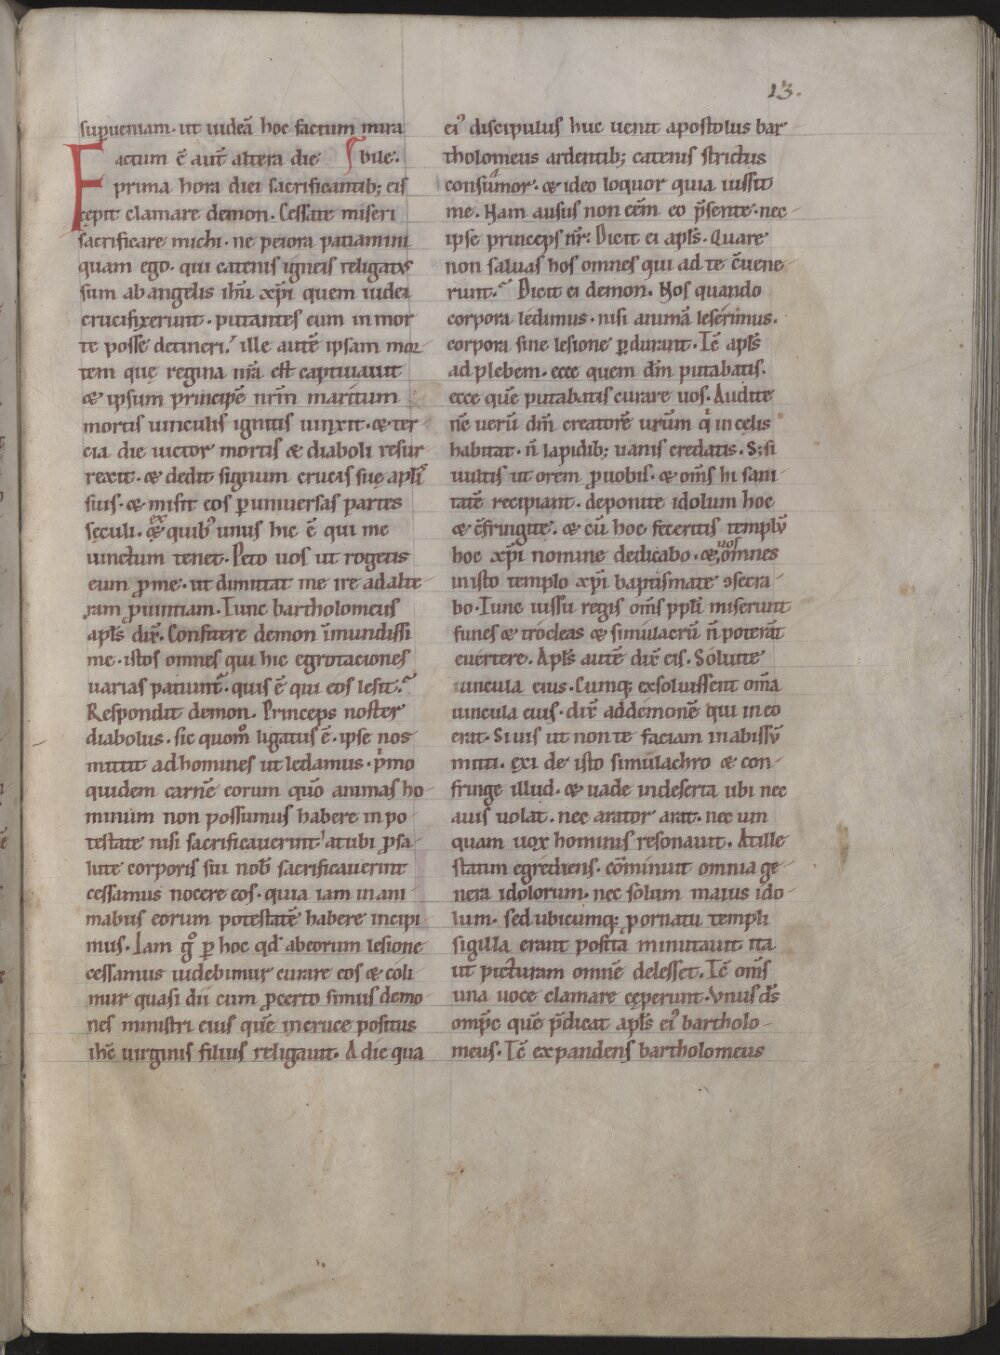 13.
supueniam. ut uideā hoc factum mira
Factum ē aut̄ altera die bile.
prima hora diei sacrificantib; eis
cępit clamare demon. Cessate miseri
sacrificare michi. ne peiora patiamini
quam ego. qui catenis igneis religatus
sum ab angelis ihū xp̄i quem iudei
crucifixerunt. putantes eum in mor
te posse detineri. ille autē ipsam mor
tem quę regina nr̄a est captiuauit
& ipsum principē nrm̄ maritum
mortis uinculis ignitis uinxit. & ter
cia die uictor mortis & diaboli resur
rexit. & dedit signum crucis suę apłis
suis. & misit eos p uniuersas partes
seculi. & ex quibꝰ unus hic ē qui me
uinctum tenet. Peto uos ut rogetis
eum pro me. ut dimittat me ire ad alte
ram puintiam. Tunc bartholomeus
apłs dix̄. Confitere demon īmundissi
me. istos omnes qui hic egrotaciones
uarias patiunt̄. quis ē qui eos lesit.
Respondit demon. Princeps noster
diabolus. sic quom̊ ligatus ē. ipse nos
mittit ad homines ut ledamus. pͥmo
quidem carnē eorum quō animas ho
minum non possumus habere in po
testate nisi sacrificauerint at ubi p sa
lute corporis sui nob̄ sacrificauerint
cessamus nocere eos. quia iam in ani
mabus eorum potestatē habere incipi
mus. Iam gͦ p hoc qd̄ ab eorum lesione
cessamus uidebimur curare eos & coli
mur quasi dii cum pcerto simus demo
nes ministri eius quē in cruce positus
ihc̄ uirginis filius religauit. A die qua
eiꝰ discipulus huc uenit apostolus bar
tholomeus ardentib; catenis strictus
consumor. & ideo loquor quia iussit
me. Nam ausus non eēm eo p̄sente. nec
ipse princeps nr̄. Dicit ei apłs. Quare
non saluas hos omnes qui ad te c̄uene
runt. Dicit ei demon. Nos quando
corpora ledimus. nisi animā leserimus.
corpora sine lesione pdurant. Tc̄ apłs
ad plebem. ecce quem dm̄ putabatis.
ecce quē putabatis curare uos. Audite
nc̄ uerū dm̄ creatorē urūm qͥ in celis
habitat. n̄ lapidib; uanis credatis. S; si
uultis ut orem p uobis. & om̄s hi sani
tatē recipiant. deponite idolum hoc
& c̄fringite. & cū hoc feceritis templū
hoc xp̄i nomine dedicabo. & uos omnes
in isto templo xp̄i baptismate ꝯsecra
bo. Tunc iussu regis om̄s ppłi miserunt
funes & trocleas & simulacrū n̄ poterāt
euertere. Apłs autē dix̄ eis. Soluite
uincula eius. Cumq; exsoluissent om̄a
uincula eius. dix̄ ad demonē qui in eo
erat. Si uis ut non te faciam in abissū
mitti. exi de isto simulachro & con
fringe illud. & uade in deserta ubi nec
auis uolat. nec arator arat. nec um
quam uox hominis resonauit. At ille
statim egrediens. cōminuit omnia ge
nera idolorum. nec solum maius ido
lum. sed ubicumq; p ornatu templi
sigilla erant posita minutauit ita
ut picturam omnē delesset. Tc̄ om̄s
una uoce clamare cęperunt. Vnus ds̄
omp̄c quē p̄dicat apłs eiꝰ bartholo
meus. Tc̄ expandens bartholomeus